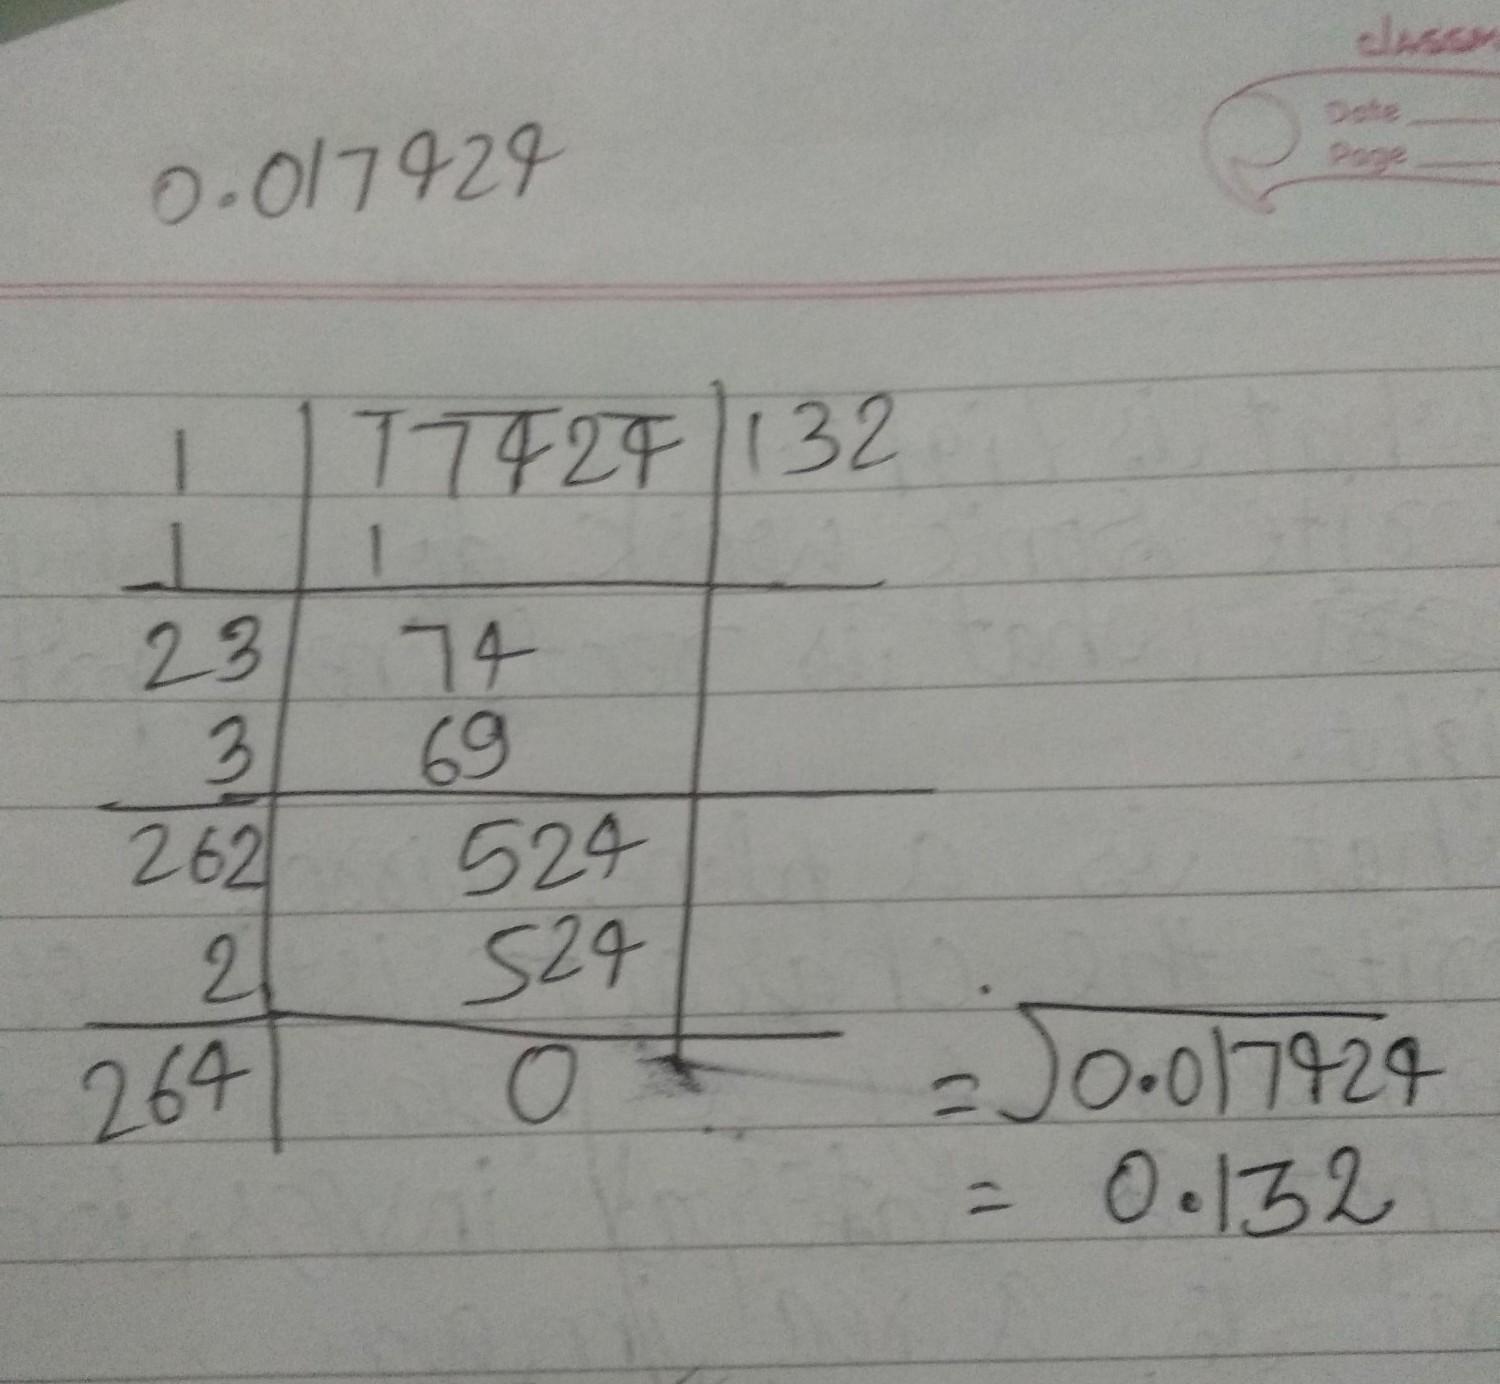 classm
Date
Page
0.017424
1 17424 132
1 1
23 74
3 69
262 524
2 524
264 0
= √0.017424
= 0.132